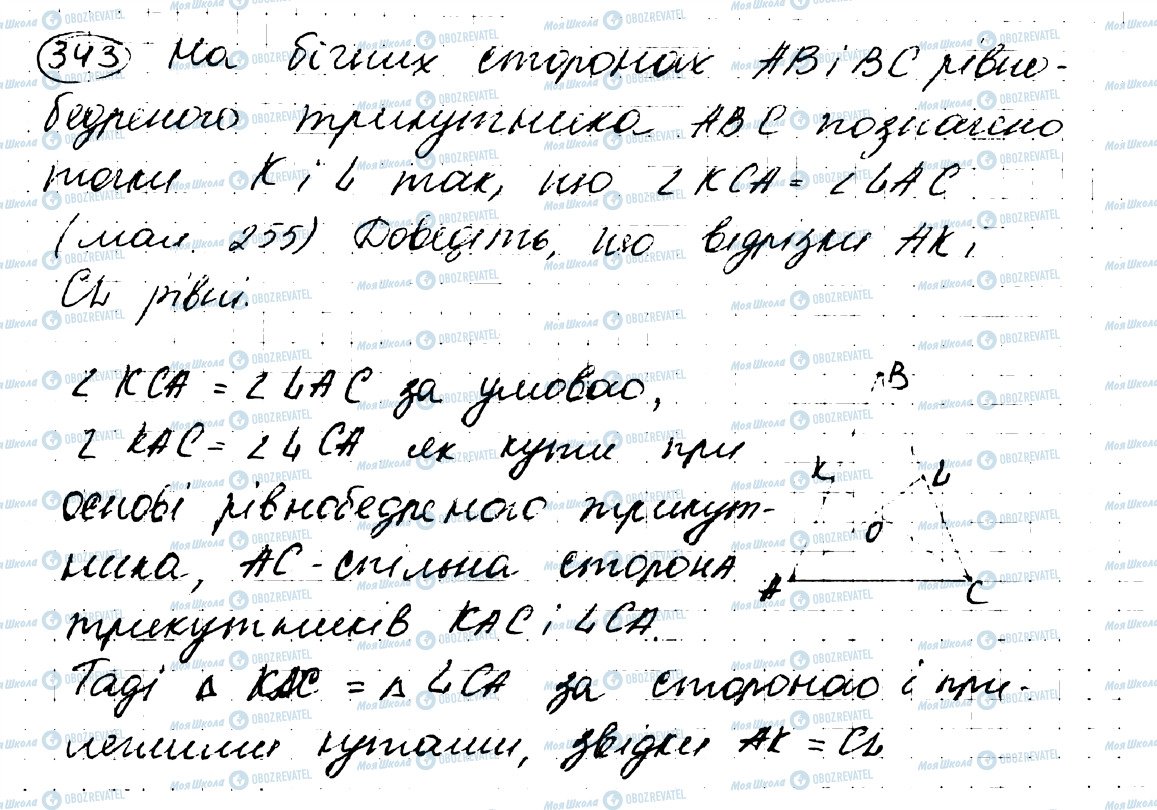 343 На бічних сторонах AB і BC рівно-
бедреного трикутника ABC позначено
точки K і L так, що ∠KCA = ∠LAC
(мал 255) Доведіть, що відрізки AK і
CL рівні.
∠KCA = ∠LAC за умовою,
∠KAC = ∠LCA як кути при
основі рівнобедреного трикут-
ника, AC - спільна сторона
трикутників KAC і LCA.
Тоді △ KAC = △ LCA за стороною і при-
леглими кутами, звідки AK = CL
B
K
L
O
A
C
МояШкола OBOZREVATEL